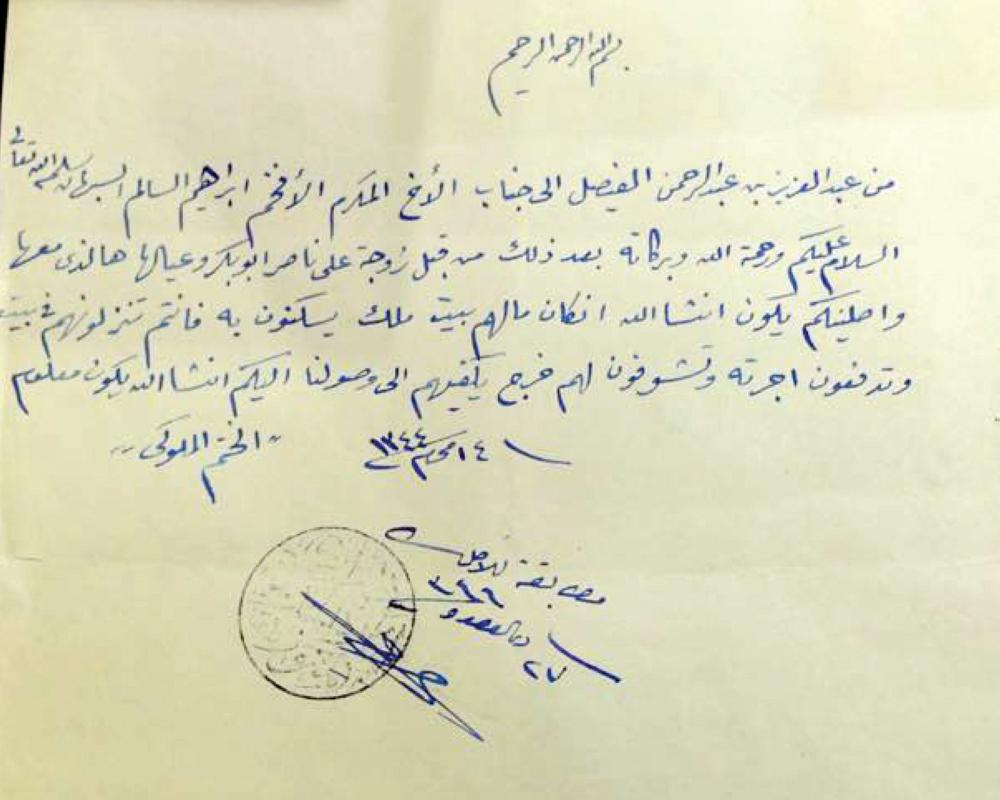 بسم الله الرحمن الرحيم
من عبد العزيز بن عبد الرحمن الفيصل الى جناب الأخ المكرم الأفخم ابراهيم السالم السبهان سلمه الله تعالى
السلام عليكم ورحمة الله وبركاته بعد ذلك من قبل زوجة على ناصر ابو بكر وعيالها هالذى معها
واصلينكم يكون انشا الله انكان مالهم بيت ملك يسكنون به فانتم تنزلونهم في بيت
وتدفعون اجرته وتشوفون لهم خرج يكفيهم الى وصولنا اليكم انشا الله يكون معلوم
١٤ محرم ١٣٤٤
"الختم الملوكى"
مطابقة للاصل
٢٧